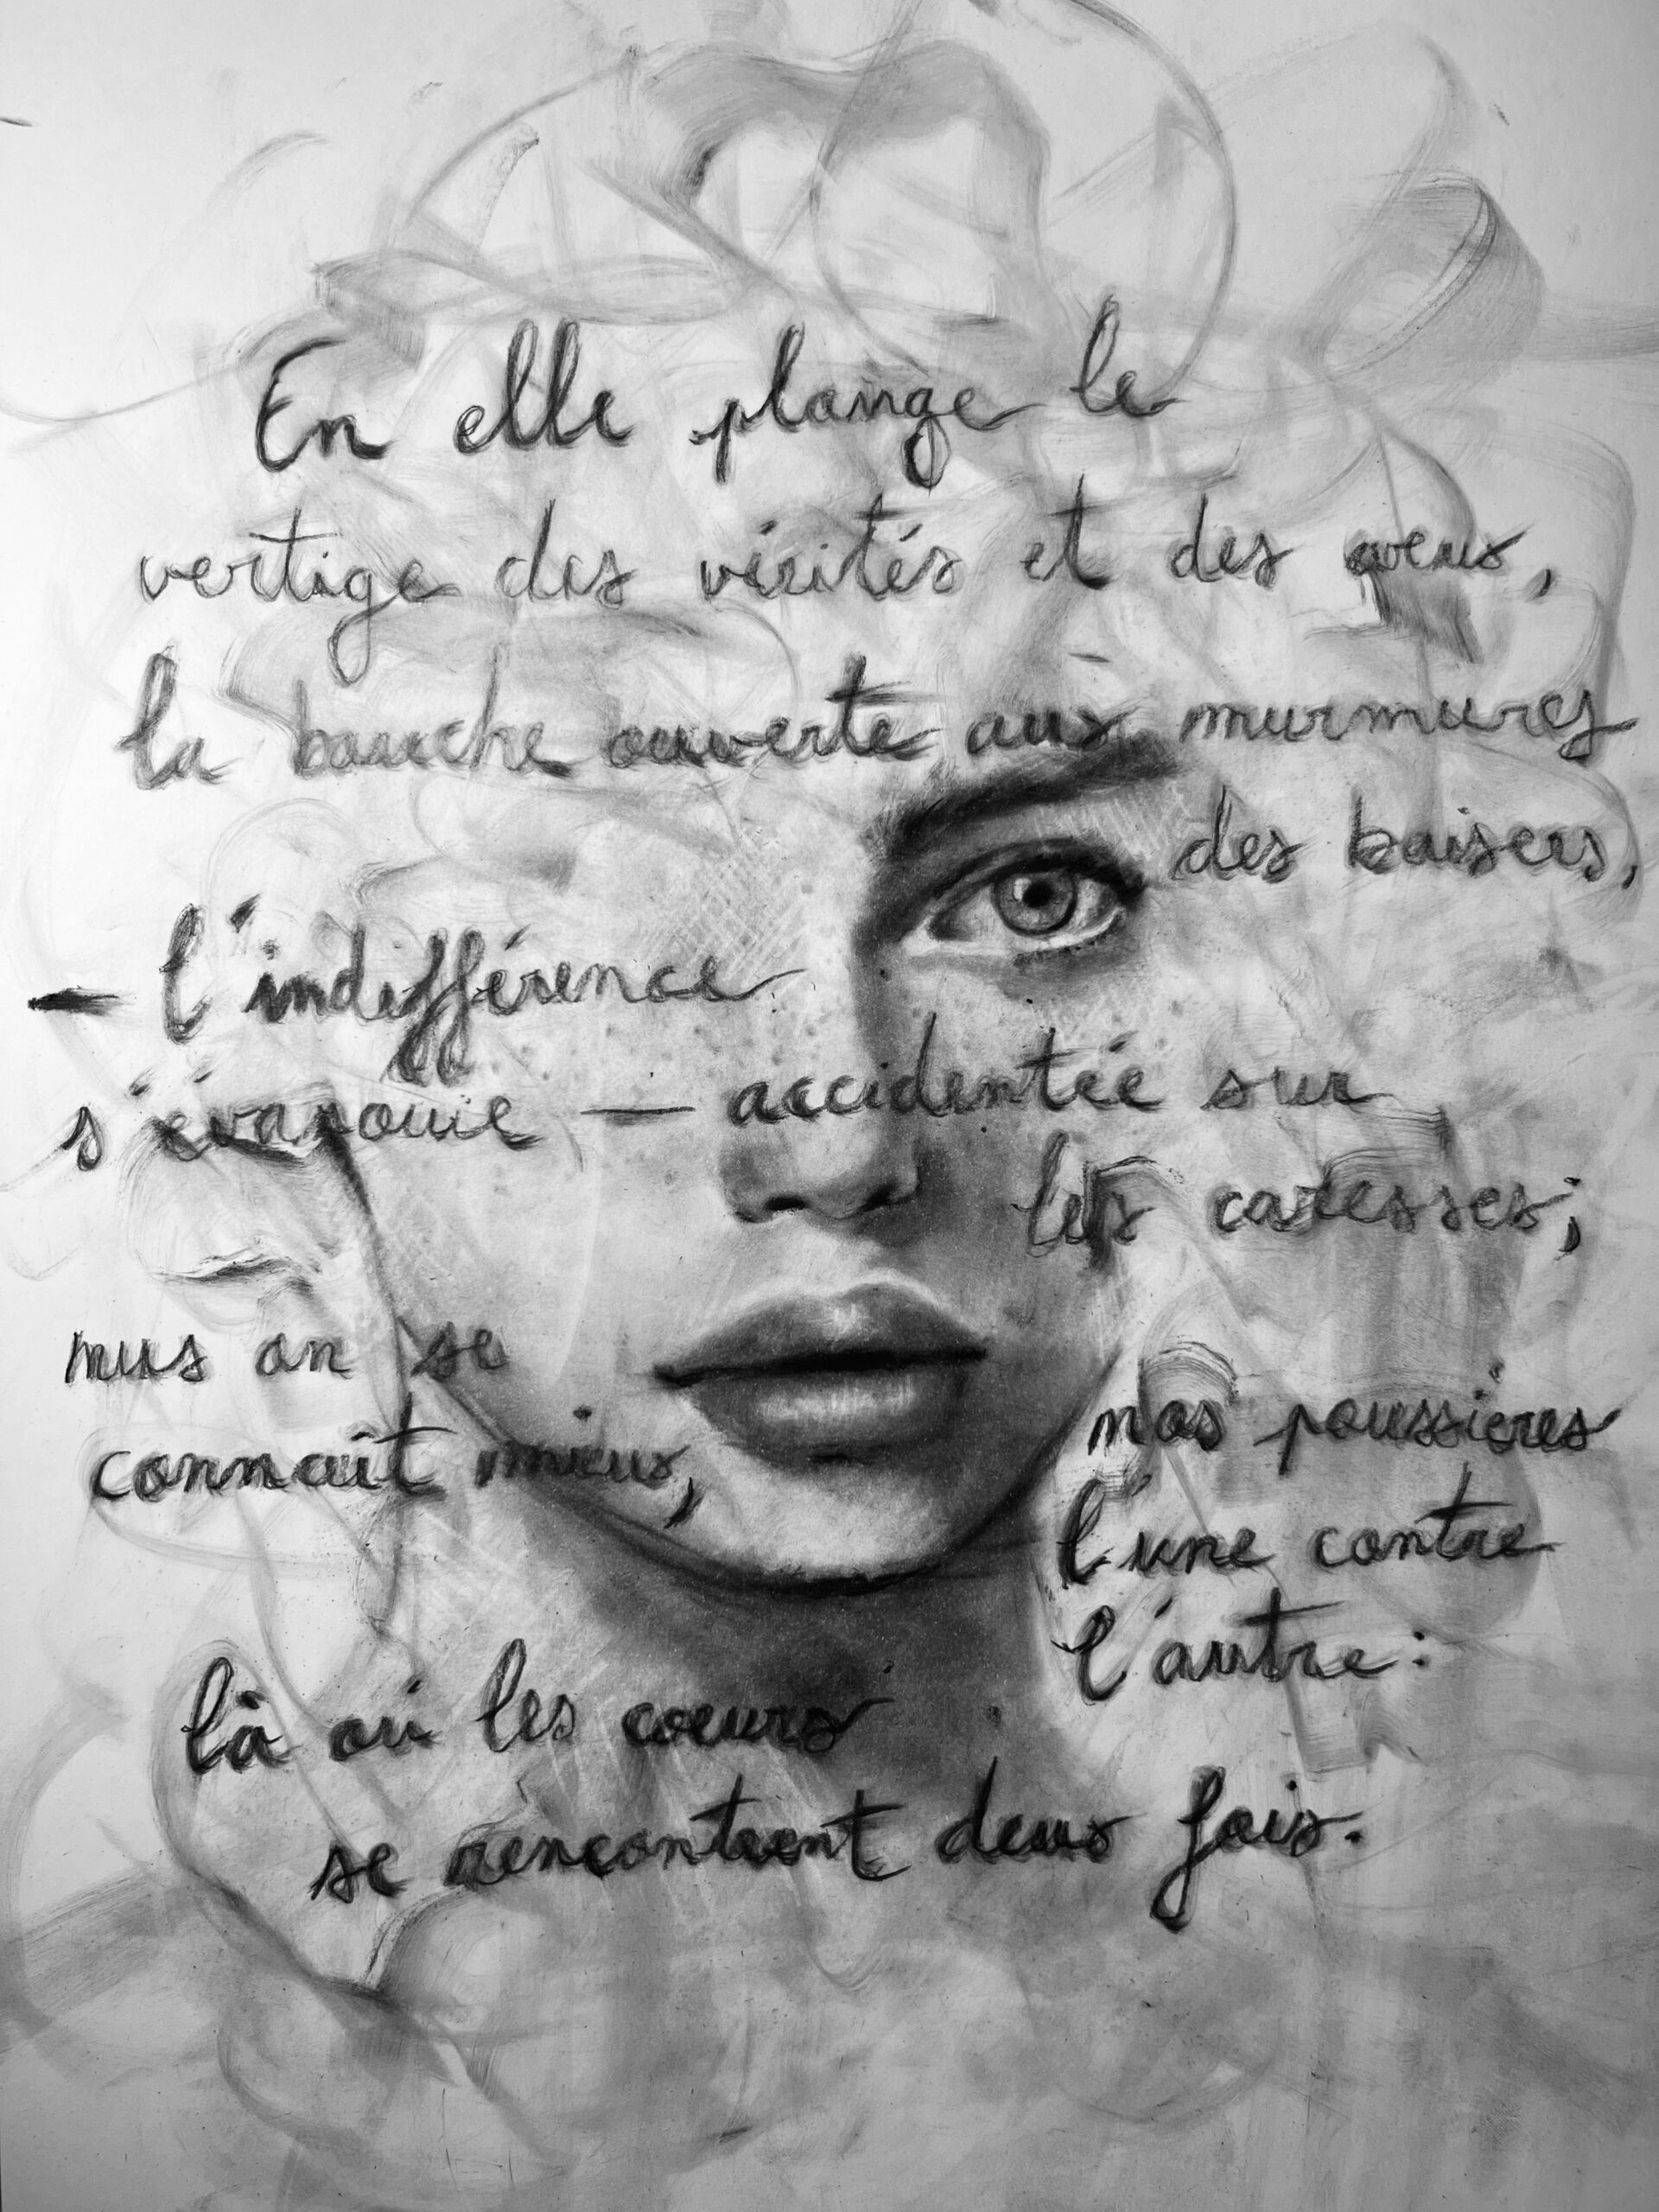 En elle plonge le
vertige des vérités et des aveux,
la bouche ouverte aux murmures
des baisers,
— l'indifférence
s'évanouie — accidentée sur
les caresses;
nus on se
connaît mieux,
nos poussières
l'une contre
l'autre:
là où les coeurs
se rencontrent deux fois.